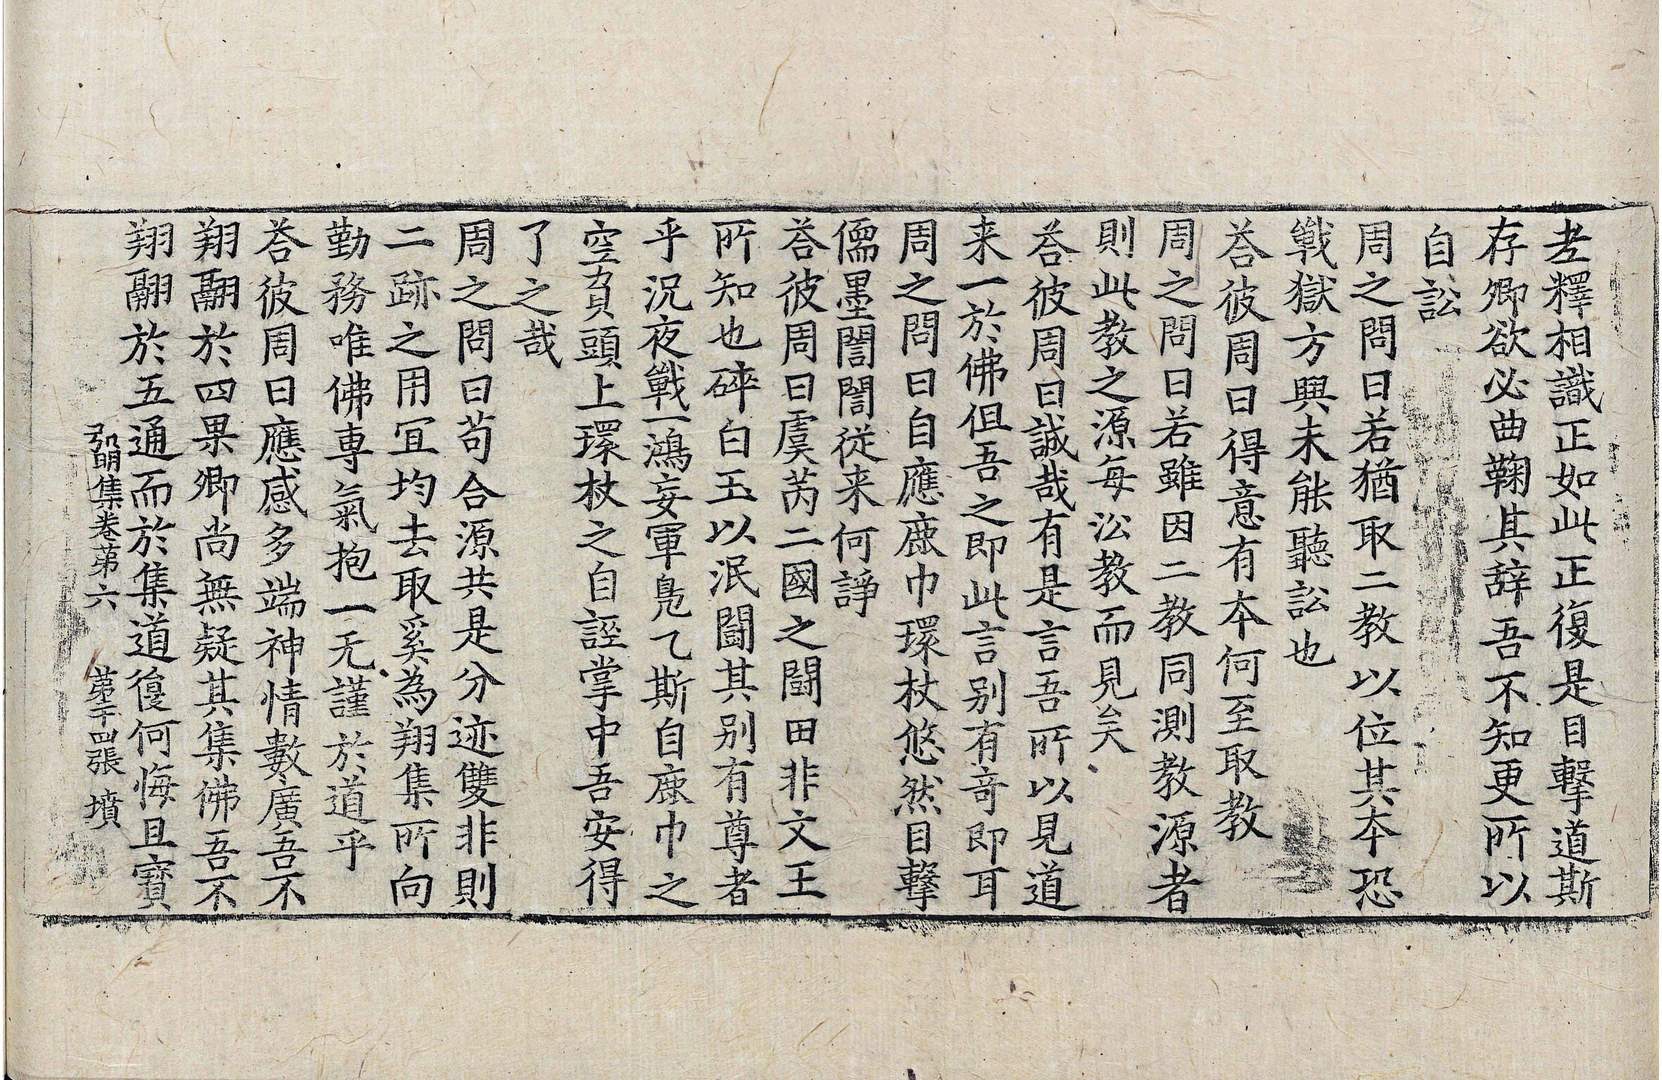 老釋相識正如此正復是目擊道斯
存卿欲必曲鞠其辞吾不知更所以
自訟
周之問曰若猶取二教以位其本恐
戰獄方興未能聽訟也
荅彼周曰得意有本何至取教
周之問曰若雖因二教同測教源者
則此教之源每沿教而見矣
荅彼周曰誠哉有是言吾所以見道
来一於佛但吾之即此言别有奇即耳
周之問曰自應鹿巾環杖悠然目擊
儒墨誾誾従来何諍
荅彼周曰虞芮二國之鬪田非文王
所知也碎白玉以泯鬪其别有尊者
乎況夜戰一鴻妄軍鳧乙斯自鹿巾之
空負頭上環杖之自誣掌中吾安得
了之哉
周之問曰苟合源共是分迹雙非則
二跡之用宜均去取奚為翔集所向
勤務唯佛專氣抱一无謹於道乎
荅彼周曰應感多端神情數廣吾不
翔翮於四果卿尚無疑其集佛吾不
翔翮於五通而於集道復何悔且寳
弘明集卷第六 第十四張 墳